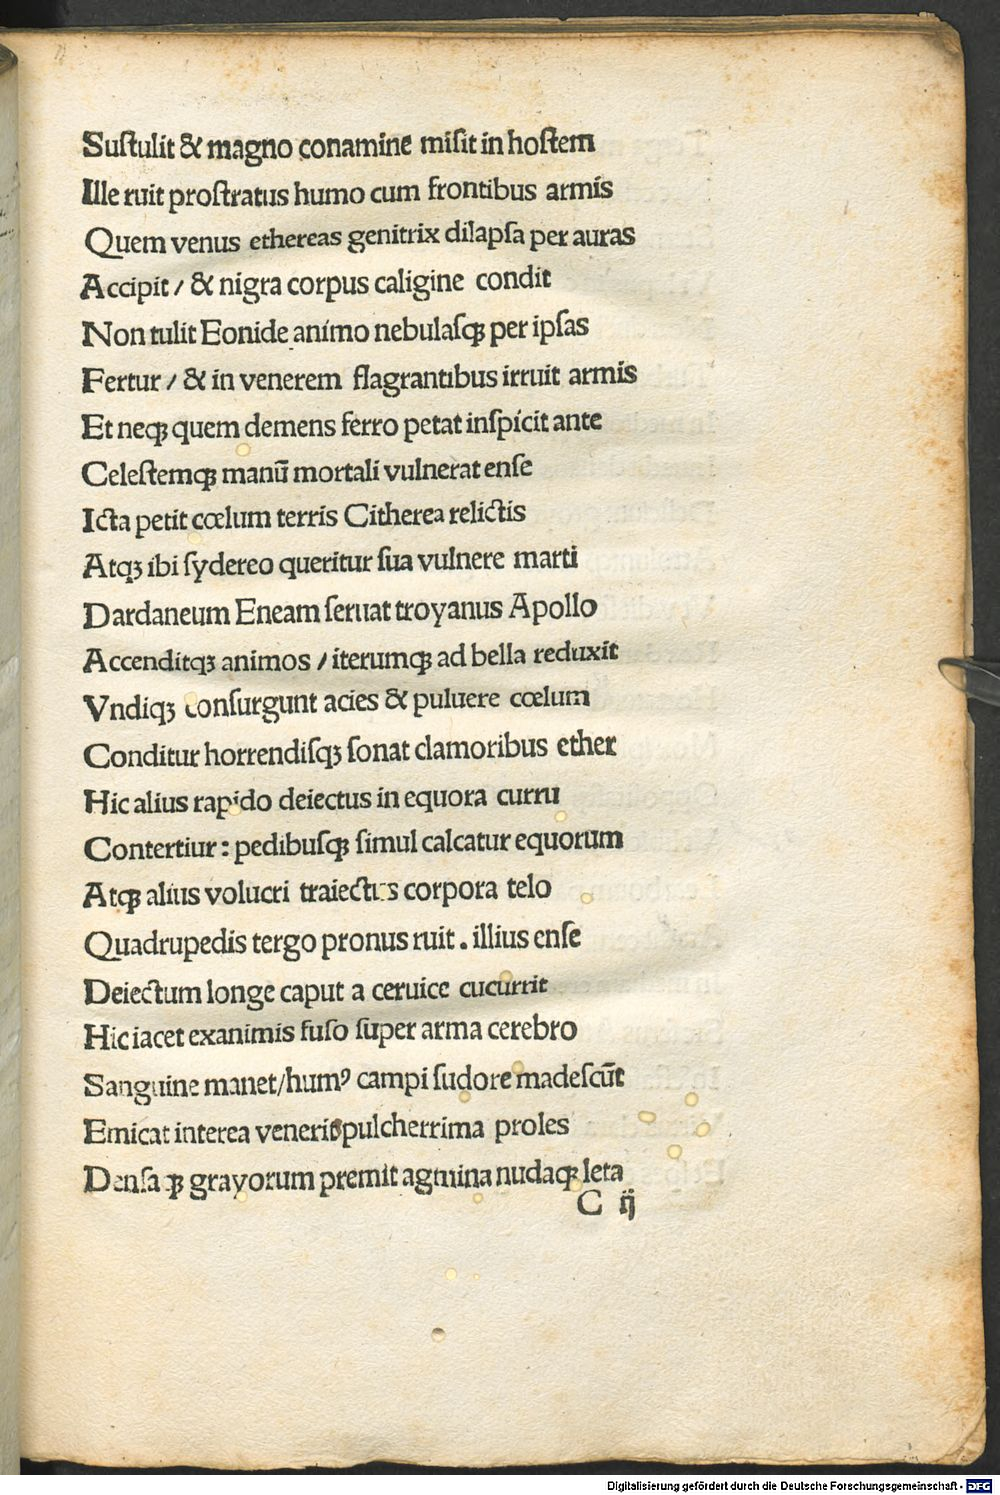 Suſtulit & magno conamine miſit in hoſtem
Ille ruit proſtratus humo cum frontibus armis
Quem venus ethereas genitrix dilapſa per auras
Accipit / & nigra corpus caligine condit
Non tulit Eonide animo nebulaſqꝫ per ipſas
Fertur / & in venerem flagrantibus irruit armis
Et neqꝫ quem demens ferro petat inſpicit ante
Celeſtemqꝫ manū mortali vulnerat enſe
Icta petit cœlum terris Citherea relictis
Atqꝫ ibi ſydereo queritur ſua vulnere marti
Dardaneum Eneam ſeruat troyanus Apollo
Accenditqꝫ animos / iterumqꝫ ad bella reduxit
Vndiqꝫ conſurgunt acies & puluere cœlum
Conditur horrendiſqꝫ ſonat clamoribus ether
Hic alius rapido deiectus in equora curru
Contertiur : pedibuſqꝫ ſimul calcatur equorum
Atqꝫ alius volucri traiectus corpora telo
Quadrupedis tergo pronus ruit . illius enſe
Deiectum longe caput a ceruice cucurrit
Hic iacet exanimis fuſo ſuper arma cerebro
Sanguine manet / humꝰ campi ſudore madeſcūt
Emicat interea veneris pulcherrima proles
Denſa qꝫ grayorum premit agmina nudaqꝫ leta
C ij
Digitalisierung gefördert durch die Deutsche Forschungsgemeinschaft - DFG